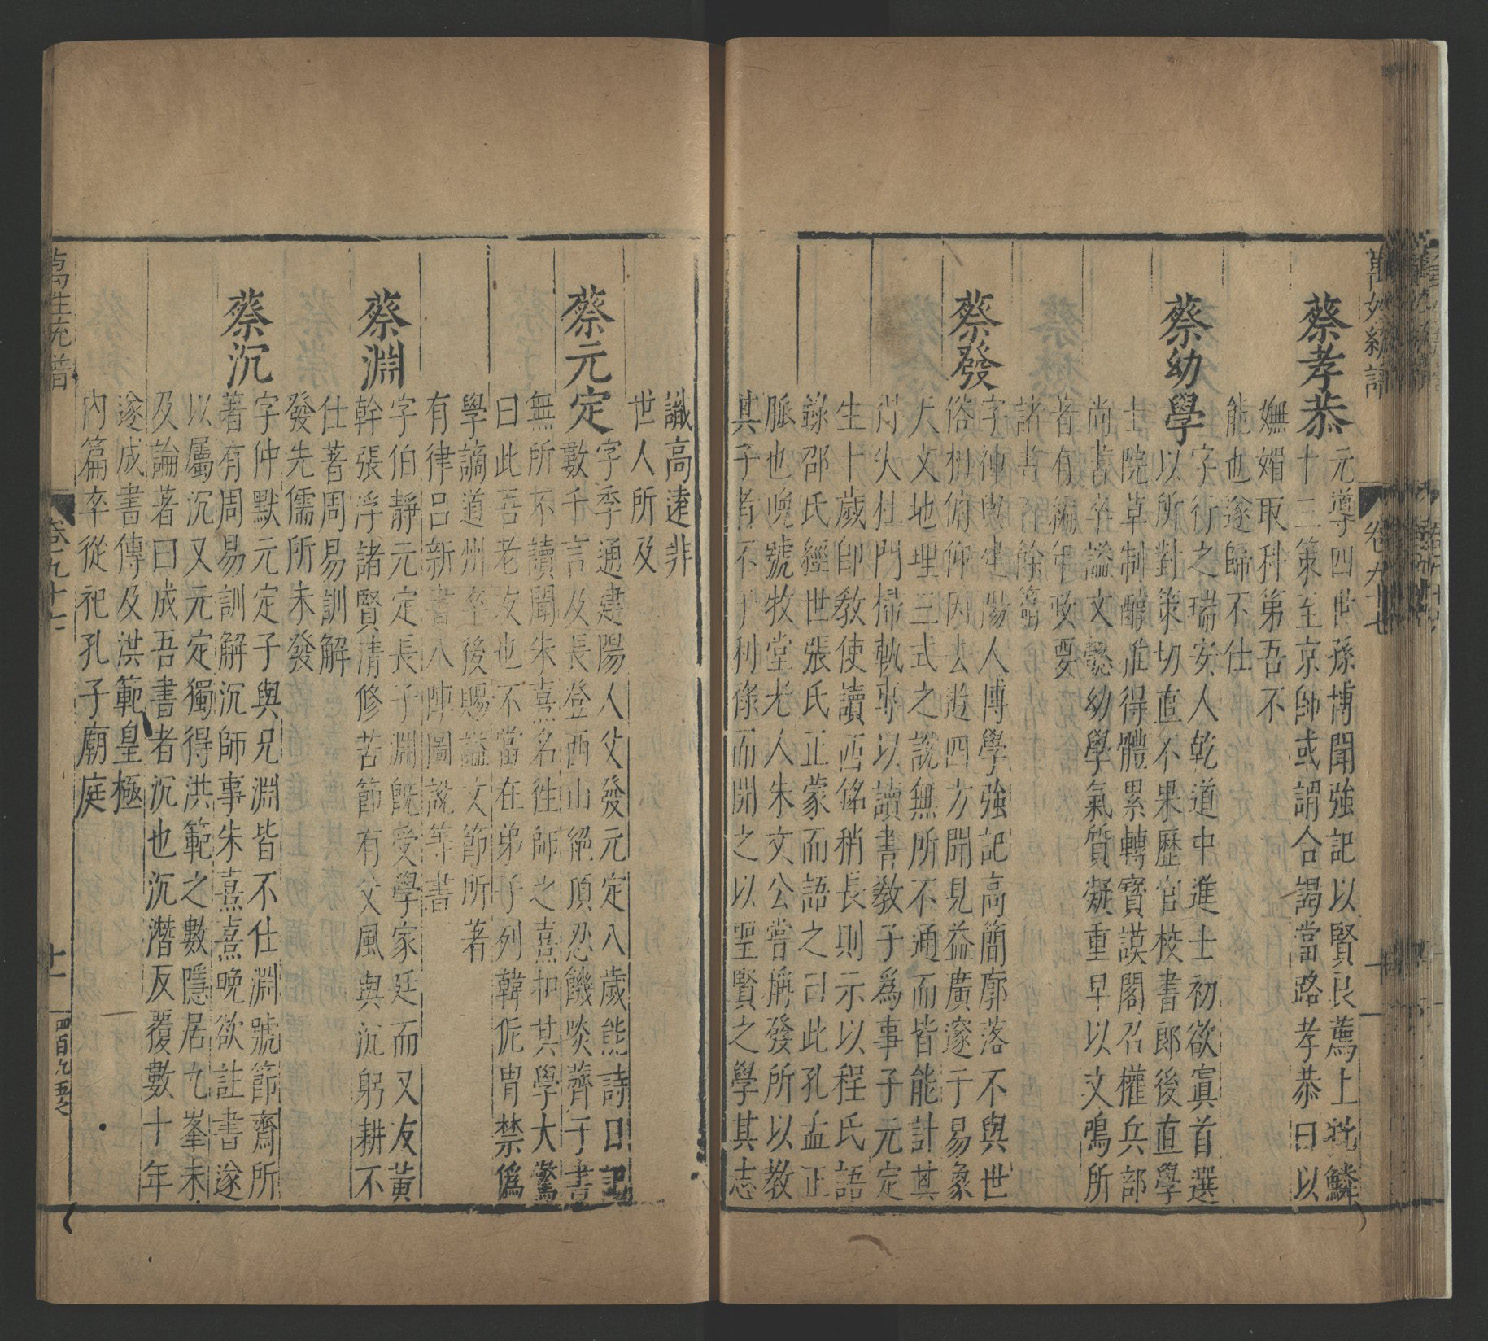 萬姓統譜
卷九十七
蔡孝恭
元導四世孫博聞強記以賢良薦上批鱗
十三策至京師或謂合謁當路孝恭曰以
嫵媚取科第吾不
能也遂歸不仕
蔡幼學
字行之瑞安人乾道中進士初欲寘首選
以所對策切直不果歷官校書郎後直學
士院草制醖雅得體累轉寶謨閣召權兵部
尚書卒謚文懿幼學氣質凝重早以文鳴所
著有編年政要
諸書餘篇
蔡發
字神與建陽人博學強記高簡廓落不與世
俗相俯仰因去遊四方聞見益廣邃于易象
天文地理三式之說無所不通而皆能計其
尚失杜門掃軌專以讀書教子為事子元定
生十歲即教使讀西銘稍長則示以程氏語
錄邵氏經世張氏正蒙而語之曰此孔孟正
脈也晚號牧堂老人朱文公嘗稱發所以教
其子者不于利祿而開之以聖賢之學其志
識高遠非
世人所及
蔡元定
字季通建陽人父發元定八歲能詩日記
數千言及長登西山絕頂忍饑啖薺于書
無所不讀聞朱熹名往師之熹扣其學大驚
曰此吾老友也不當在弟子列韓侂冑禁偽
學謫道州卒後賜謚文節所著
有律呂新書八陣圖說等書
蔡淵
字伯靜元定長子淵旣受學家廷而又友黃
幹張洽諸賢清修苦節有父風與沉躬耕不
仕著周易訓解
發先儒所未發
蔡沉
字仲默元定子與兄淵皆不仕淵號節齋所
著有周易訓解沉師事朱熹熹晚欲註書遂
以屬沉又元定獨得洪範之數隱居九峯未
及論著曰成吾書者沉也沉潛反覆數十年
遂成書傳及洪範皇極
內篇卒從祀孔子廟庭
萬姓統譜
卷九十七
十一
四百九五